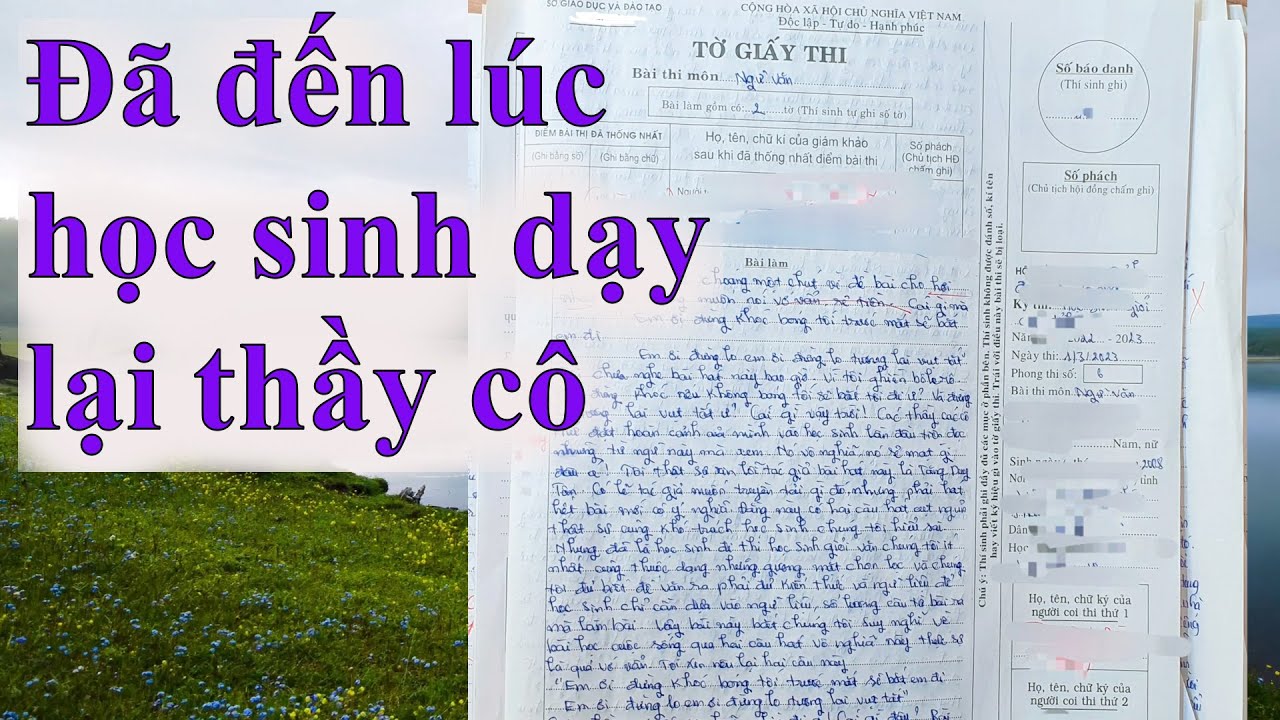 Đã đến lúc
học sinh dạy
lại thầy cô
SỞ GIÁO DỤC VÀ ĐÀO TẠO
CỘNG HÒA XÃ HỘI CHỦ NGHĨA VIỆT NAM
Độc lập - Tự do - Hạnh phúc
TỜ GIẤY THI
Bài thi môn Ngữ Văn
Bài làm gồm có: 2 tờ (Thí sinh tự ghi số tờ)
ĐIỂM BÀI THI ĐÃ THỐNG NHẤT
(Ghi bằng số) (Ghi bằng chữ)
Họ, tên, chữ kí của giám khảo
sau khi đã thống nhất điểm bài thi
Số phách
(Chủ tịch HĐ
chấm ghi)
Bài làm
choáng một chút vì đề bài cho hơi
muốn nói vớ vẩn rẻ tiền. Cái gì mà
Em ơi đừng khóc bóng tối trước mắt sẽ bắt
em đi
Em ơi đừng lo em ơi đừng lo tương lai vụt tắt
chưa nghe bài hát này bao giờ. Vì tôi ghiền bôlerô
khóc nếu không bóng tối sẽ bắt tôi đi ư? Và đừng
lai vụt tắt ư? Cái gì vậy trời! Các thầy các cô
đặt hoàn cảnh của mình vào học sinh lần đầu tiên đọc
những từ ngữ này mà xem. Nó vô nghĩa, nó sẽ mất gì
đâu ạ? Tôi thật sự xin lỗi tác giả bài hát này là Tăng Duy
Tân. Có lẽ tác giả muốn truyền tải gì đó nhưng phải hát
hết bài mới có ý nghĩa. Đằng này có hai câu hát cụt ngủn
thật sự cũng khó trách học sinh chúng tôi hiểu sai
Nhưng đã là học sinh đi thi học sinh giỏi văn chúng tôi ít
nhất cũng thuộc dạng những gương mặt chọn lọc và chúng
tôi đủ biết đề văn ra phải đủ kiến thức và ngữ liệu để
học sinh chỉ cần dựa vào ngữ liệu, số lượng câu từ bài ra
mà làm bài. Vậy bài này bắt chúng tôi suy nghĩ về
bài học cuộc sống qua hai câu hát vô nghĩa này thực sự
là quá vớ vẩn. Tôi xin nêu lại hai câu này
"Em ơi đừng khóc bóng tối trước mắt sẽ bắt em đi
Em ơi đừng lo em ơi đừng lo tương lai vụt tắt"
Chú ý: Thí sinh phải ghi đầy đủ các mục ở phần bên. Thí sinh không được đánh số, kí tên
hay viết ký hiệu gì vào tờ giấy thi. Trái với điều này bài thi sẽ bị loại.
Số báo danh
(Thí sinh ghi)
Số phách
(Chủ tịch hội đồng chấm ghi)
Năm 2022 - 2023
Ngày thi: 1/3/2023
Phòng thi số: 6
Bài thi môn Ngữ Văn
Nam, nữ
2008
tỉnh
Dân
Học
Họ, tên, chữ ký của
người coi thi thứ 1
Họ, tên, chữ ký của
người coi thi thứ 2